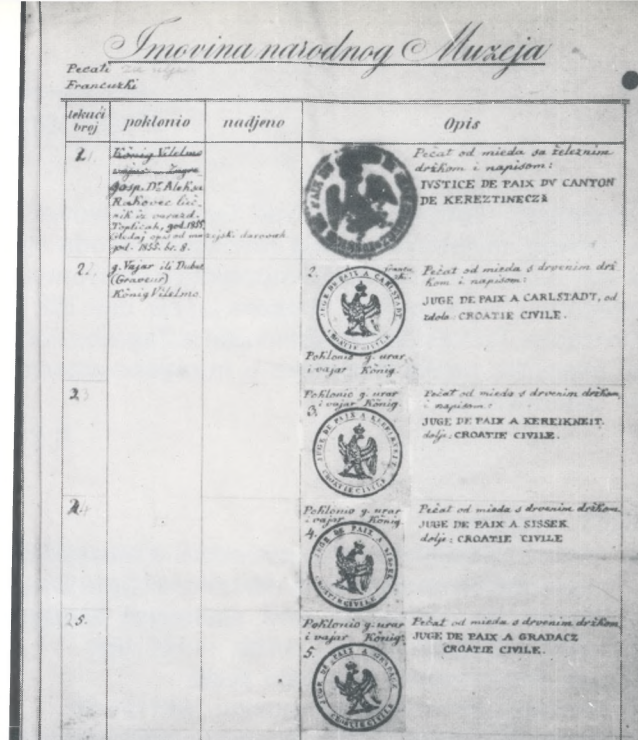 Imovina narodnog Muzeja
Pečati
Francuzki
tekući broj
poklonio
nadjeno
Opis
1.
König Vilelmo
gosp. Dr. Aleksa
Rakovec lieč-
nik iz varažd.
Toplicah, god. 1855.
Gledaj opis od muzejskih darovah
god. 1855. br. 8.
Pečat od mieda sa železnim
držkom i napisom:
IVSTICE DE PAIX DV CANTON
DE KEREZTINECZ
2.
g. Vajar ili Dubač
(Graveur)
König Vilelmo.
2.
JUGE DE PAIX A CARLSTADT,
CROATIE CIVILE
Poklonio g. urar
i vajar König.
Pečat od mieda s drvenim drž
kom i napisom:
JUGE DE PAIX A CARLSTADT, od
zdola: CROATIE CIVILE.
3.
Poklonio g. urar
i vajar König.
3.
JUGE DE PAIX A KEREIKNEIT.
CROATIE CIVILE
Pečat od mieda s drvenim držkom,
i napisom:
JUGE DE PAIX A KEREIKNEIT.
dolje: CROATIE CIVILE.
4.
Poklonio g. urar
i vajar König.
4.
JUGE DE PAIX A SISSEK
CROATIE CIVILE
Pečat od mieda s drvenim držkom
JUGE DE PAIX A SISSEK
dolje: CROATIE CIVILE
5.
Poklonio g. urar
i vajar König.
5.
JUGE DE PAIX A GRADACZ
CROATIE CIVILE
Pečat od mieda s drvenim držkom,
JUGE DE PAIX A GRADACZ
CROATIE CIVILE.